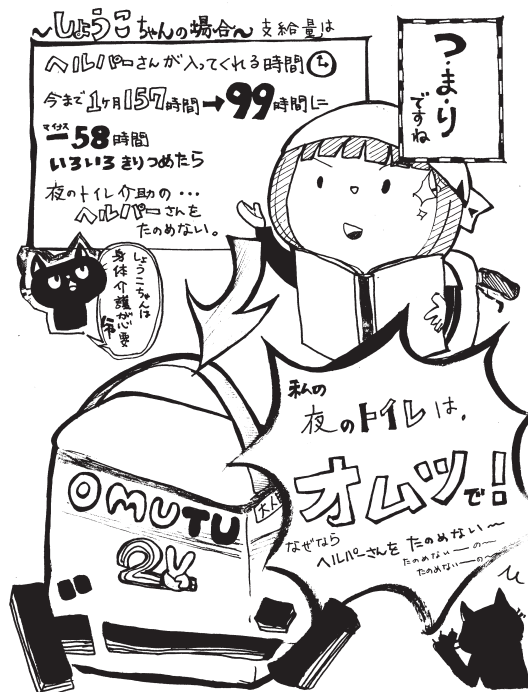 つ・ま・り
ですね
~しょうこちゃんの場合~ 支給量は
ヘルパーさんが入ってくれる時間
今まで1ヶ月157時間→99時間に
マイナス
－58時間
いろいろきりつめたら
夜のトイレ介助の・・・
ヘルパーさんを
たのめない。
しょうこちゃんは
身体介護が必要
私の
夜のトイレは、
オムツで!
なぜなら
ヘルパーさんをたのめない~
たのめない—の~
たのめない—の~
OMUTU
2